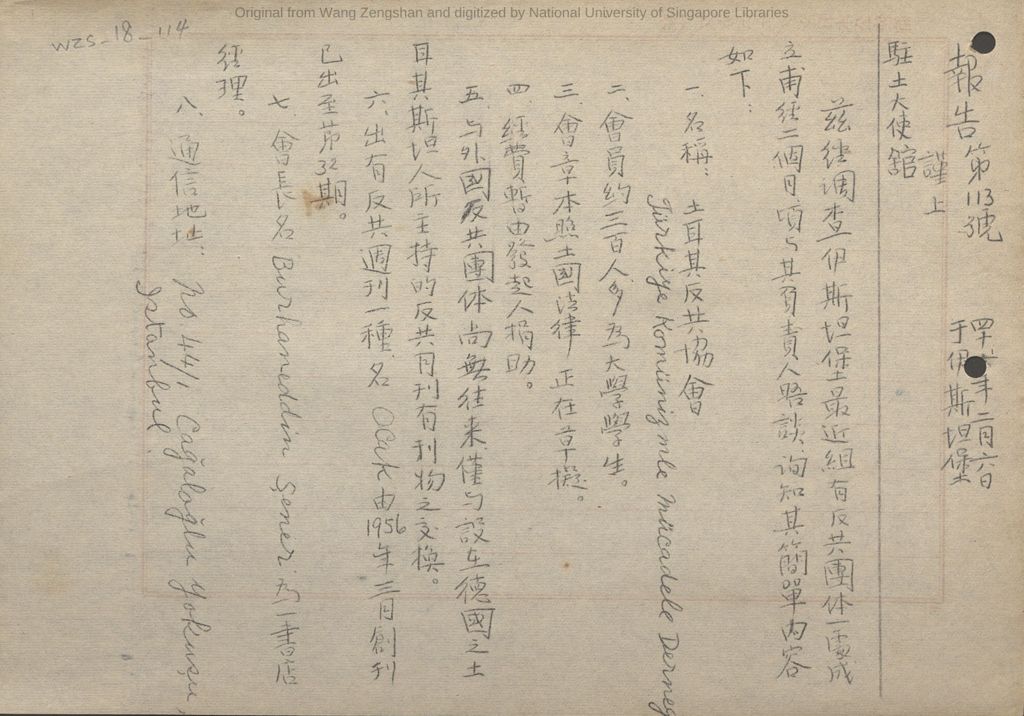 Original from Wang Zengshan and digitized by National University of Singapore Libraries
wzs_18_114
報告第113號
四十六年二月六日
于伊斯坦堡
謹上
駐土大使舘
茲經调查伊斯坦堡最近組有反共團体一處成
立甫经二個月頃与其負責人晤談询知其簡單内容
如下：
一.名稱：土耳其反共協會
Türkiye Komünizmle Mücadele Derneğ
二.會員约三百人多为大學學生。
三.會章本照土國法律正在草擬。
四.經費暫由發起人捐助。
五.与外國反共團体尚無往来僅与設在德國之土
耳其斯坦人所主持的反共月刊有刊物之交換。
六.出有反共週刊一種.名 Ocak 由1956年三月創刊
已出至苐32期。
七.會長名 Burhaneddin Şener 为一書店
经理。
八.通信地址：No 44/1 Cağaloğlu Yokuşu,
Istanbul